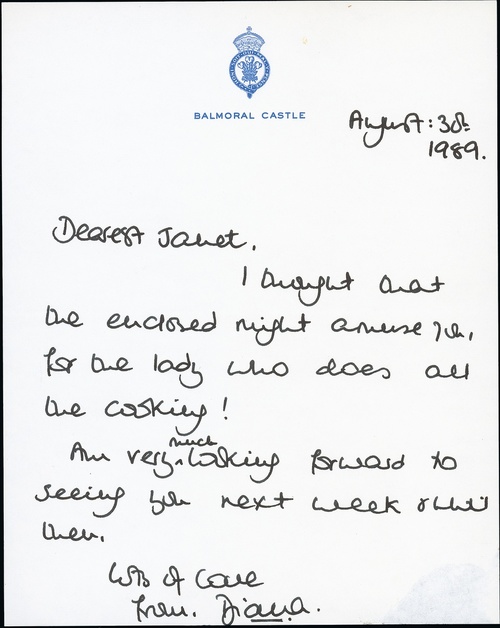 BALMORAL CASTLE
August: 30th
1989.
Dearest Janet,
I thought that
the enclosed might amuse you,
for the lady who does all
the cooking!
Am very much looking forward to
seeing you next week & until
then,
Lots of love
from. Diana.